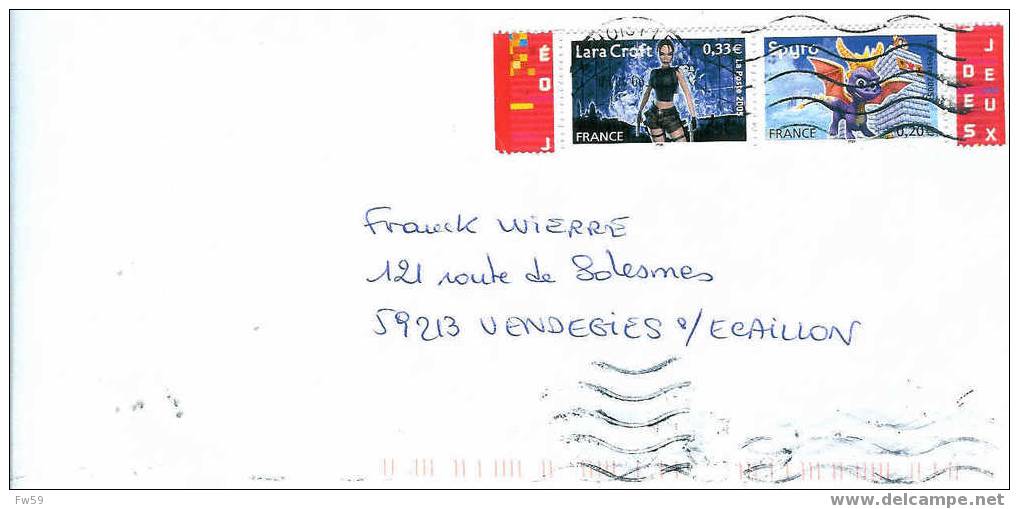 Lara Croft 0,33€
FRANCE
Spyro
FRANCE 0,20€
Franck WIERRE
121 route de Solesmes
59213 VENDEGIES s/ECAILLON
Fw59
www.delcampe.net